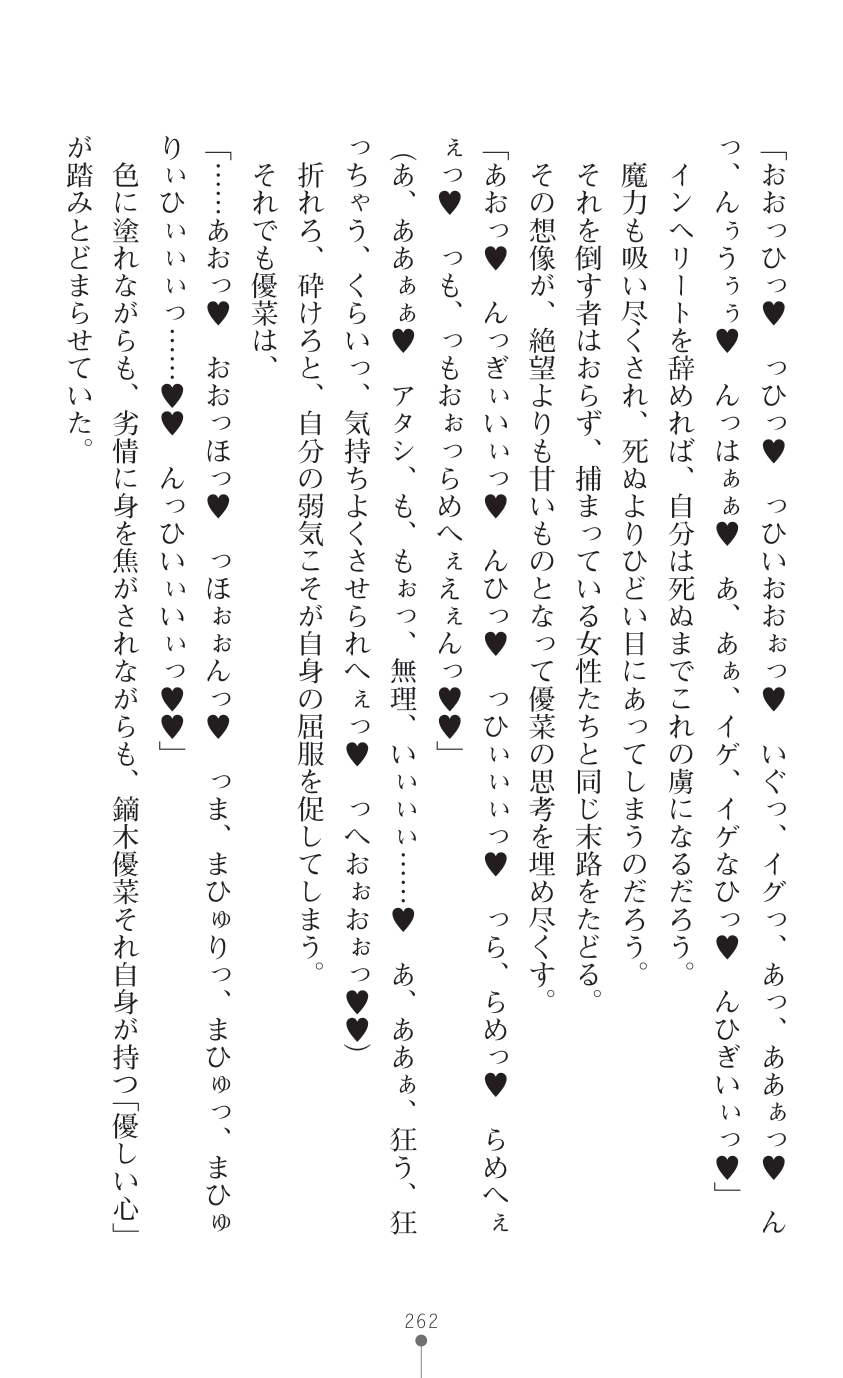 「おおっひっ♥　っひっ♥　っひいおおぉっ♥　いぐっ、イグっ、あっ、ああぁっ♥　ん
っ、んぅうぅぅ♥　んっはぁぁ♥　あ、あぁ、イゲ、イゲなひっ♥　んひぎいぃっ♥」
　インヘリートを辞めれば、自分は死ぬまでこれの虜になるだろう。
　魔力も吸い尽くされ、死ぬよりひどい目にあってしまうのだろう。
　それを倒す者はおらず、捕まっている女性たちと同じ末路をたどる。
　その想像が、絶望よりも甘いものとなって優菜の思考を埋め尽くす。
「あおっ♥　んっぎぃいぃっ♥　んひっ♥　っひぃぃぃっ♥　っら、らめっ♥　らめへぇ
ぇっ♥　つも、つもおぉっらめへぇえぇんっ♥♥」
（あ、ああぁぁ♥　アタシ、も、もぉっ、無理、いぃぃぃ……♥　あ、ああぁ、狂う、狂
っちゃう、くらいっ、気持ちよくさせられへぇっ♥　っへおぉおぉっ♥♥）
　折れろ、砕けろと、自分の弱気こそが自身の屈服を促してしまう。
　それでも優菜は、
「……あおっ♥　おおっほっ♥　っほぉぉんっ♥　っま、まひゅりっ、まひゅっ、まひゅ
りぃひぃぃぃっ……♥♥　んっひいぃいぃっ♥♥」
　色に塗れながらも、劣情に身を焦がされながらも、鏑木優菜それ自身が持つ「優しい心」
が踏みとどまらせていた。
262